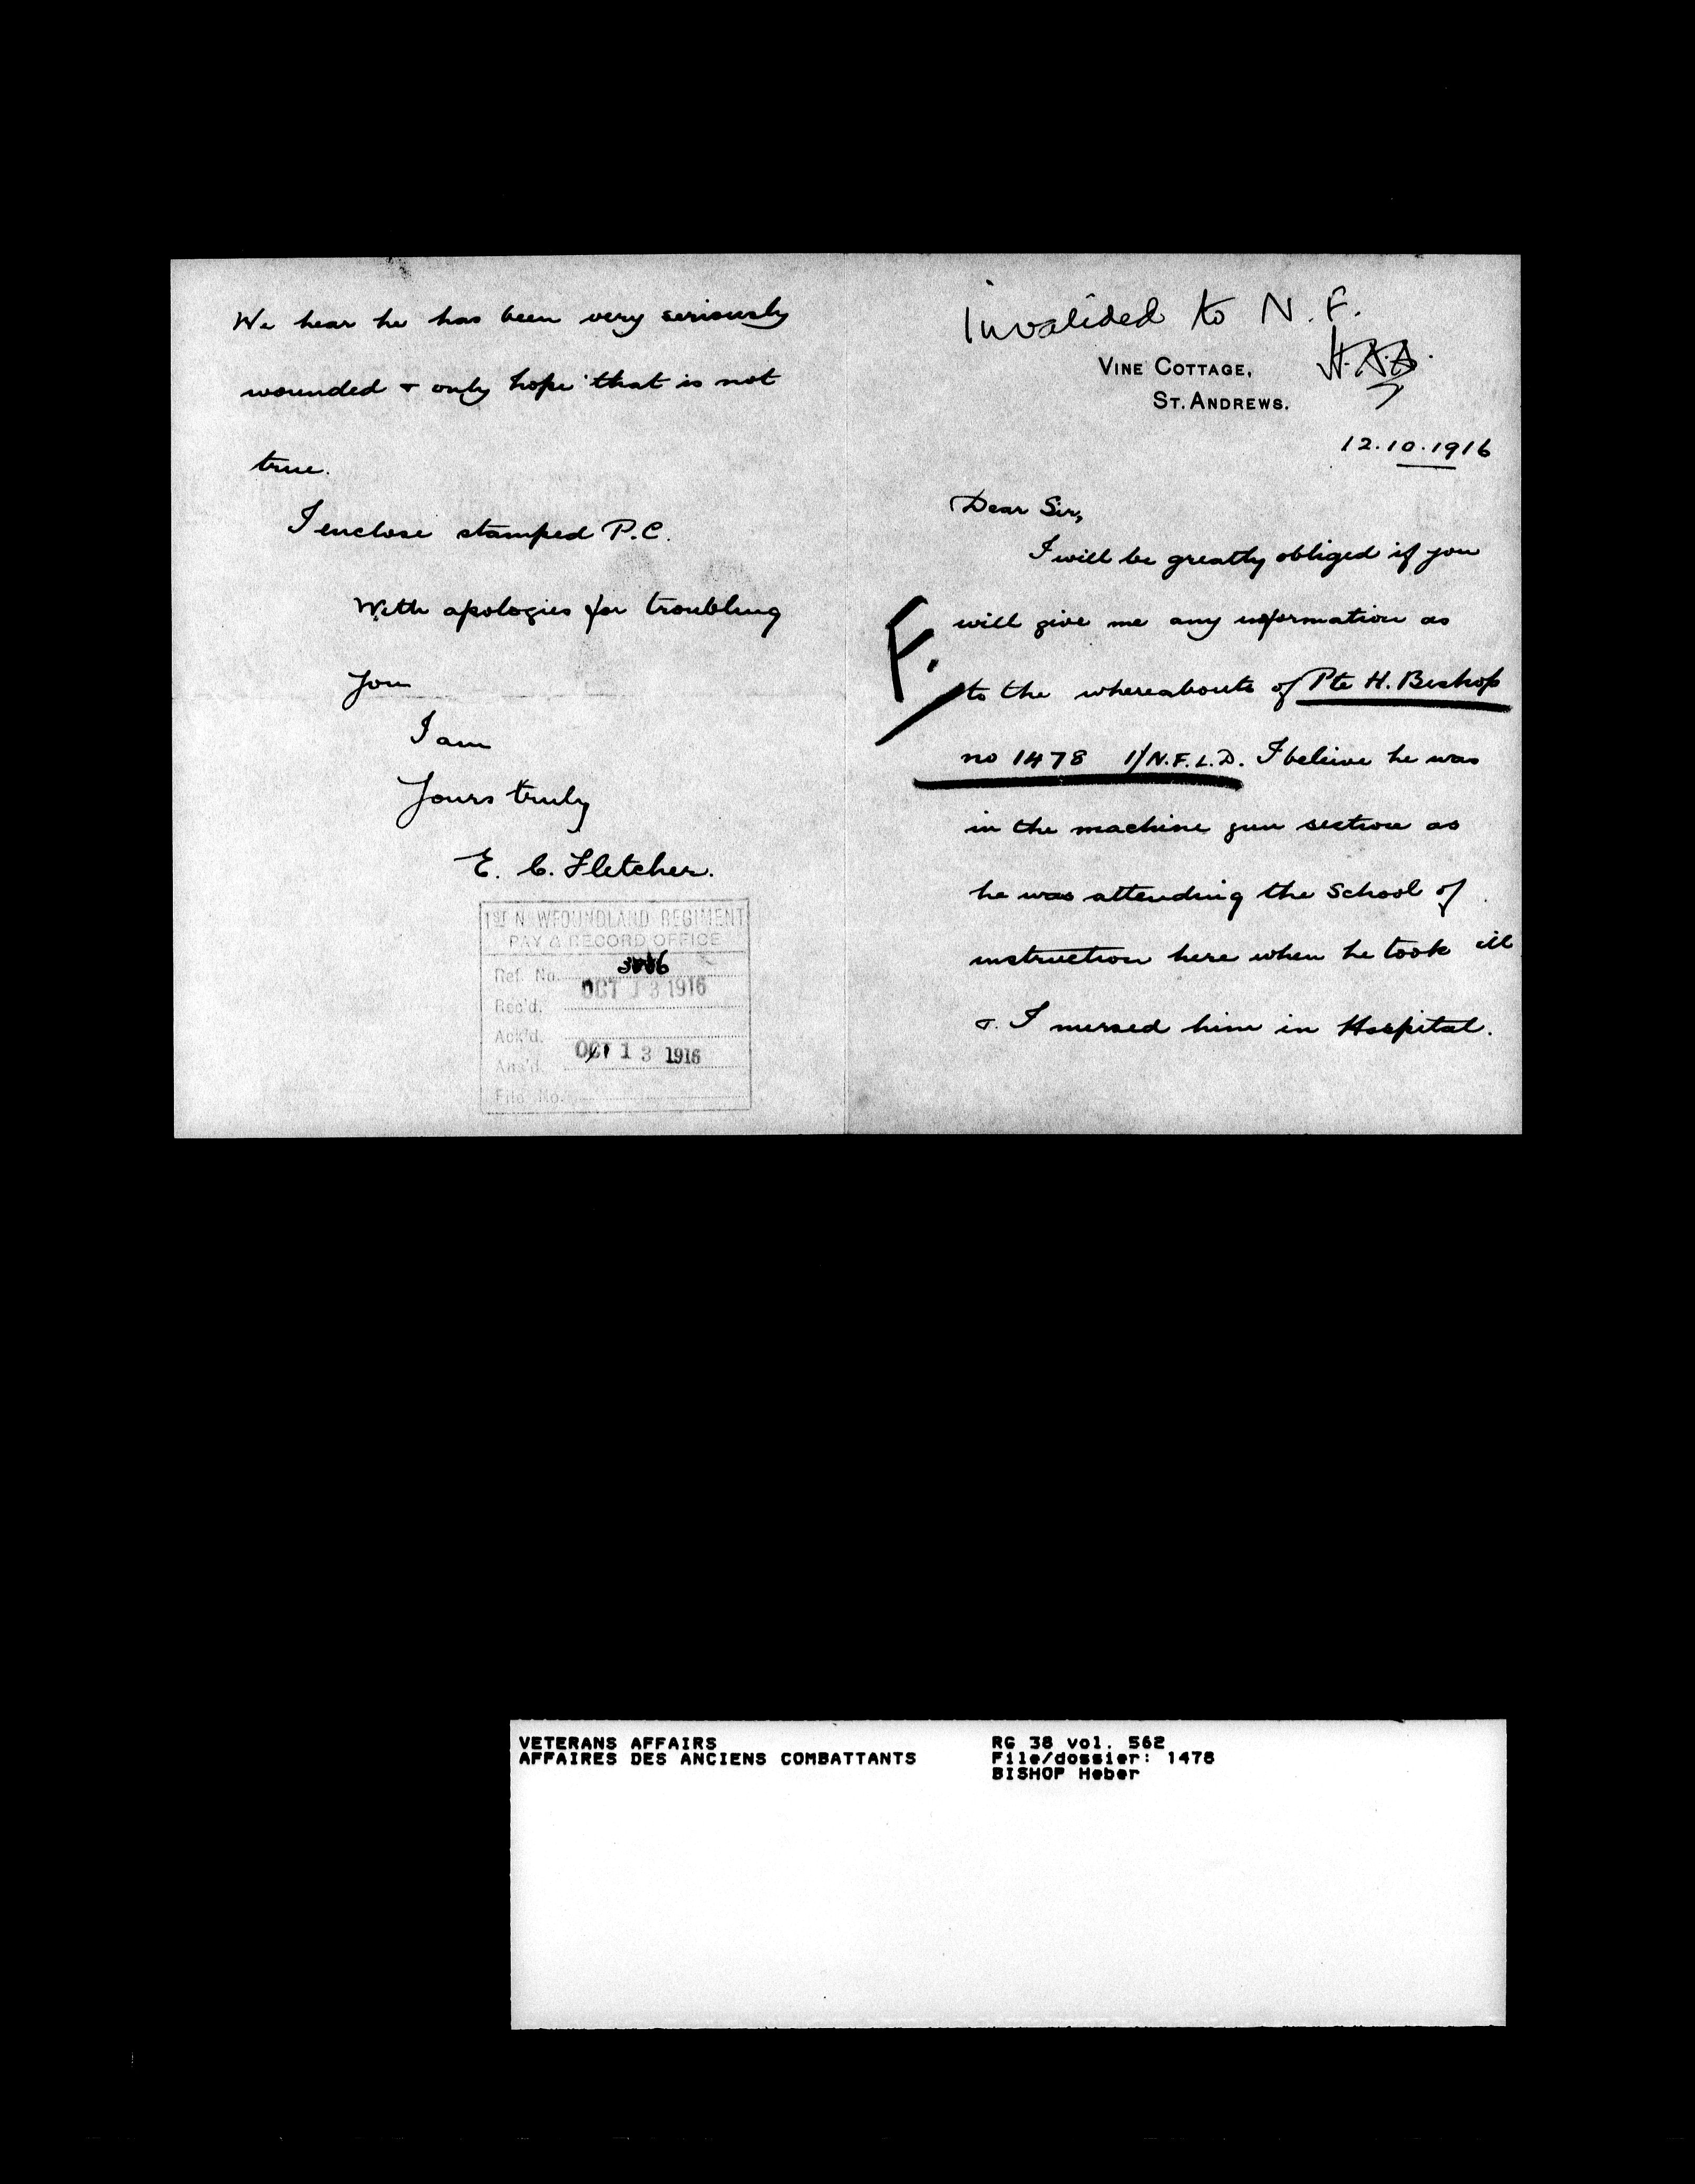 Invalided to N.F.
VINE COTTAGE,
ST. ANDREWS.
12.10.1916
Dear Sir,
I will be greatly obliged if you
will give me any information as
F.
to the whereabouts of Pte H. Bishop
no 1478 1/N.F.L.D. I beleive he was
in the machine gun section as
he was attending the School of
instruction here when he took ill
& I nursed him in Hospital.
We hear he has been very seriously
wounded & only hope that is not
true.
I enclose stamped P.C.
With apologies for troubling
you
I am
Yours truly
E. C. Fletcher.
1ST NEWFOUNDLAND REGIMENT
PAY & RECORD OFFICE
Ref. No.
Rec'd. OCT 13 1916
Ack'd.
Ans'd. OCT 13 1916
File No.
VETERANS AFFAIRS
AFFAIRES DES ANCIENS COMBATTANTS
RG 38 vol. 562
File/dossier: 1478
BISHOP Heber